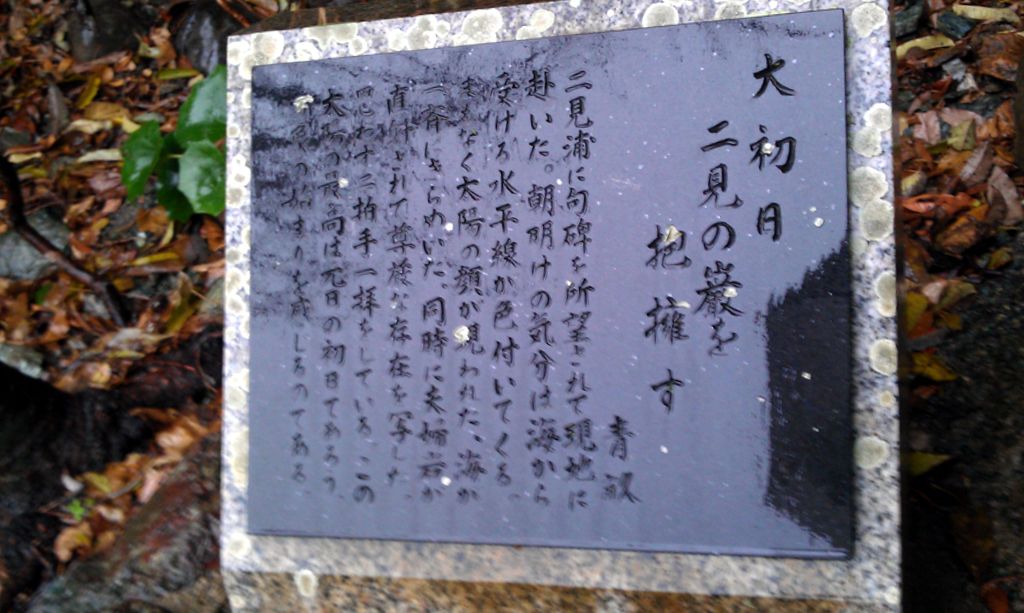 大初日
二見の巌を
抱擁す
青
二見浦に句碑を所望されて現地に
赴いた。朝明けの気分は海から
受ける水平線が色付いてくる。
まもなく太陽の顔が現われた、海が
一斉にきらめいた。同時に夫婦岩が
直射されて尊厳な存在を写した。
十二拍手一拝をしている、この
太陽の最高は元日の初日であろう、
の始まりを感じるのである